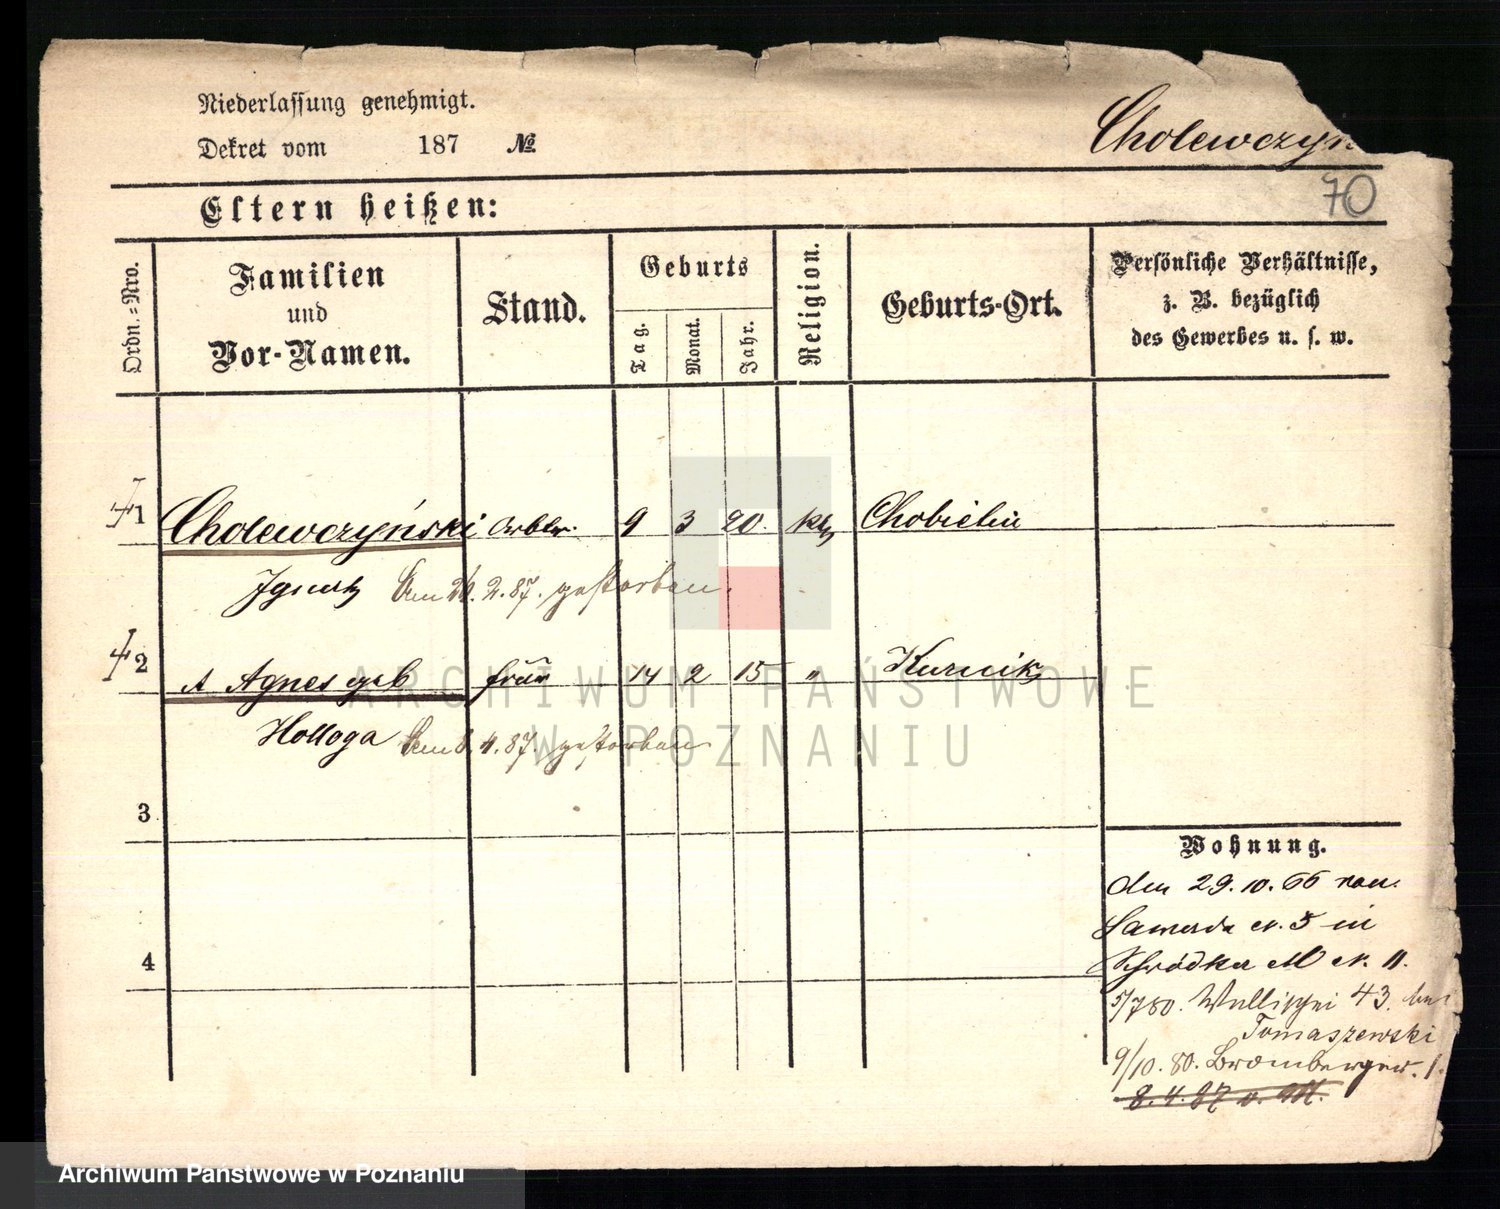 Niederlassung genehmigt.
Cholewczyn
Dekret vom 187 №
70
Eltern heißen:
Ordn.=Nro.
Familien
und
Vor-Namen.
Stand.
Geburts
Tag.
Monat.
Jahr.
Religion.
Geburts-Ort.
Persönliche Verhältnisse,
z. B. bezüglich
des Gewerbes u. s. w.
1 Cholewczyński Arbtr. 9 3 20. kth Chobielin
Ignatz Am 26. 2. 87. gestorben.
2 Agnes geb frau 14 2 15 " Kurnik
Holloga Am 8. 4. 87. gestorben
3
4
Wohnung.
den 29. 10. 66 von
Sawade N. 5 in
Schrödka M N. 11.
5/7 80. Wallischei 43. bei
Tomaszewski
9/10. 80. Bromberger. 1.
8. 4. 87
ARCHIWUM PAŃSTWOWE
W POZNANIU
Archiwum Państwowe w Poznaniu